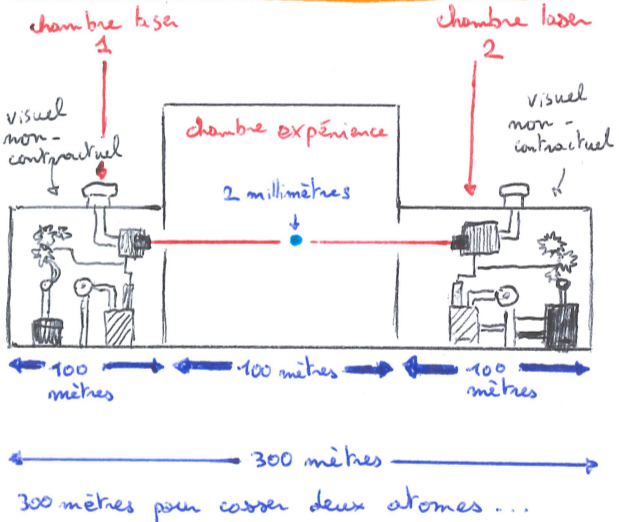 chambre laser
1
chambre laser
2
visuel
non-
contractuel
visuel
non-
contractuel
chambre expérience
2 millimètres
100
mètres
100 mètres
100
mètres
300 mètres
300 mètres pour casser deux atomes...